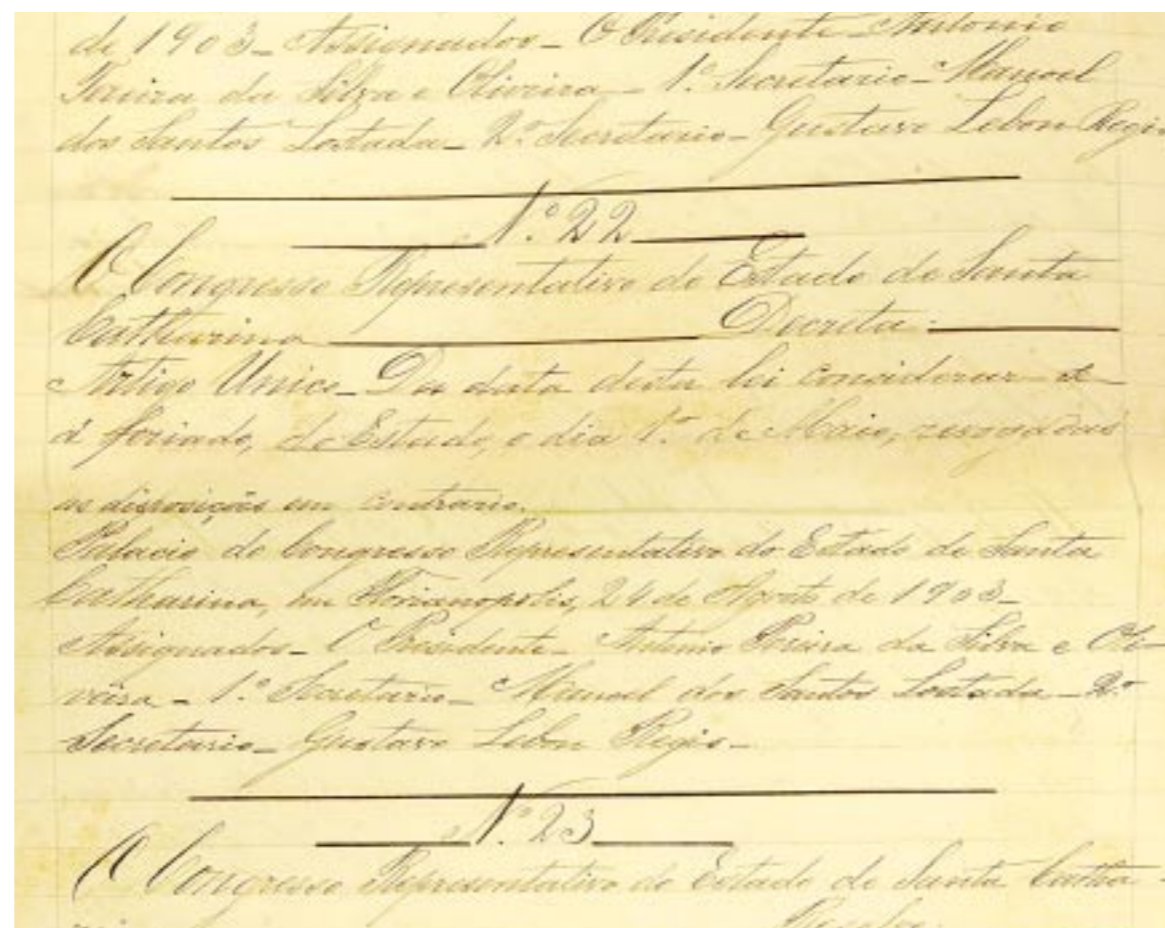 de 1903_ Assignados_ O Presidente_ Antonio
Pereira da Silva e Oliveira_ 1.º Secretario_ Manoel
dos Santos Lostada_ 2.º Secretario_ Gustavo Lebon Regis
N.º 22
O Congresso Representativo do Estado de Santa
Catharina Decreta:
Artigo Unico_ Da data desta lei considerar-se-
á feriado, do Estado, o dia 1.º de Maio, revogadas
as disposições em contrario.
Palacio do Congresso Representativo do Estado de Santa
Catharina, em Florianopolis, 24 de Agosto de 1903_
Assignados_ O Presidente_ Antonio Pereira da Silva e Oli-
veira_ 1.º Secretario_ Manoel dos Santos Lostada_ 2.º
Secretario_ Gustavo Lebon Regis_
N.º 23
O Congresso Representativo do Estado de Santa Catha-